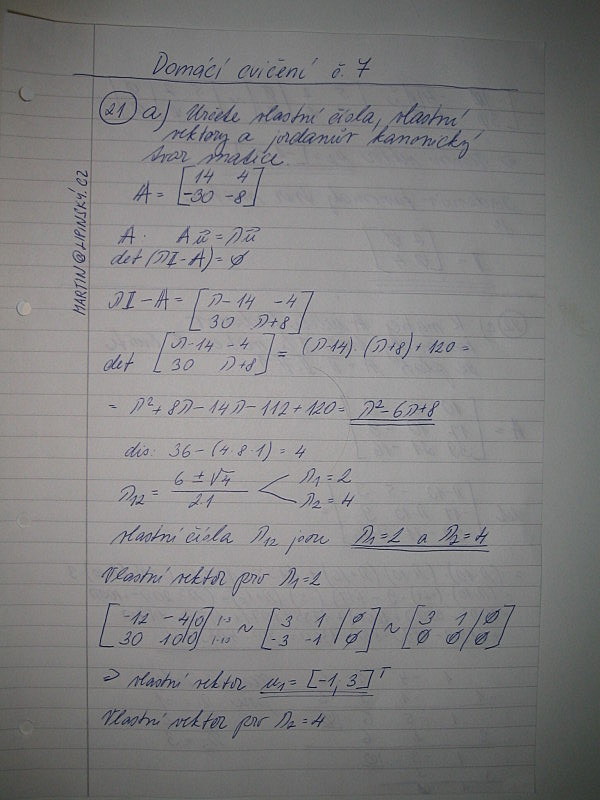 Domácí cvičení č. 7
21 a) Určete vlastní čísla, vlastní
vektory a jordanův kanonický
tvar matice.
A = [14 4; -30 -8]
A. Au⃗ = λu⃗
det(λI-A) = 0
λI-A = [λ-14 -4; 30 λ+8]
det [λ-14 -4; 30 λ+8] = (λ-14)·(λ+8)+120 =
= λ²+8λ-14λ-112+120 = λ²-6λ+8
dis: 36-(4·8·1) = 4
λ12 = (6 ± √4)/(2·1) λ1=2 λ2=4
vlastní čísla λ12 jsou λ1=2 a λ2=4
Vlastní vektor pro λ1=2
[-12 -4|0; 30 10|0] ~ [3 1|0; -3 -1|0] ~ [3 1|0; 0 0|0]
⇒ vlastní vektor u1 = [-1, 3]ᵀ
Vlastní vektor pro λ2=4
MARTIN@LIPINSKÝ.CZ